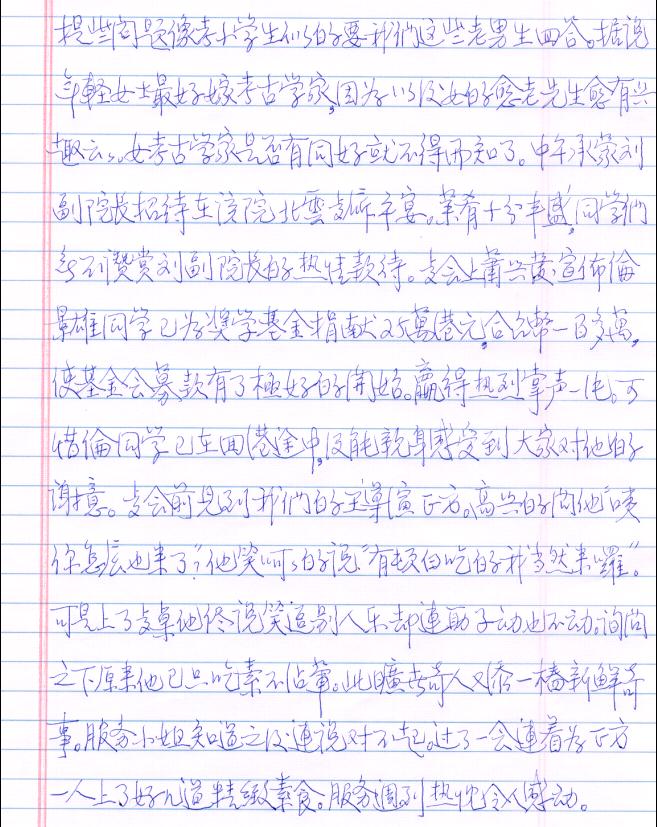 提些问题像考小学生似的要我们这些老男生回答。据说
年轻女士最好嫁考古学家,因为以后她的愈老先生愈有兴
趣云云。女考古学家是否有同好就不得而知了。中午承蒙刘
副院长招待在该院北云厅午宴。菜肴十分丰盛,同学们
无不赞赏刘副院长的热情款待。宴会上萧兴黄宣佈倫
景雄同学已为奖学基金捐献25萬港元,合台幣一百多萬,
使基金会募款有了極好的開始。贏得热烈掌声一片。可
惜倫同学已在回港途中,没能親身感受到大家对他的
謝意。宴会前見到我們的至演正方。高兴的问他“唉
你怎么也来了?”他笑呵呵的说“有顿白吃的我当然来囉”。
可是上了桌他佟说笑逗别人乐却連助子动也不动。询问
之下原来他已只吃素不沾葷。此曠世奇人又添一樁新鲜奇
事。服务小姐知道之后連说对不起。过了一会連着为正方
一人上了好几道精緻素食。服务週到热忱令人感动。